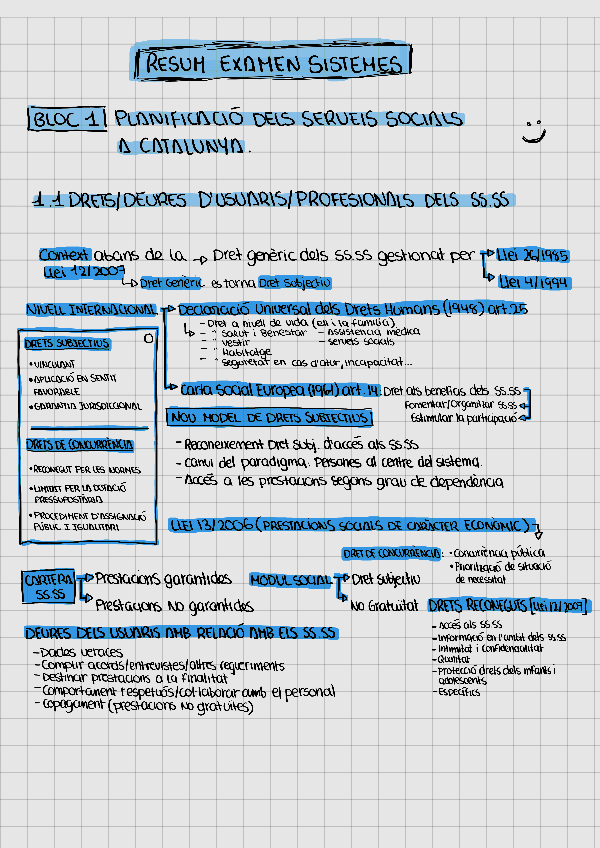 RESUM EXAMEN SISTEMES
BLOC 1 PLANIFICACIÓ DELS SERVEIS SOCIALS
A CATALUNYA.
1.1 DRETS/DEURES D'USUARIS/PROFESIONALS DELS SS.SS
Context abans de la → Dret genèric dels SS.SS gestionat per → Llei 26/1985
Llei 12/2007
→ Llei 4/1994
→ Dret Genèric es torna Dret Subjectiu
NIVELL INTERNACIONAL → Declaració Universal dels Drets Humans (1948) art.25
- Dret a nivell de vida (ell i la família)
- " Salut i Benestar - Assistència mèdica
- " Vestir - serveis socials
- " Habitatge
- " seguretat en cas d'atur, incapacitat...
→ Carta Social Europea (1961) art.14: Dret als beneficis dels SS.SS
Fomentar/Organitzar SS.SS
Estimular la participació
DRETS SUBJECTIUS
• VINCULANT
• APLICACIÓ EN SENTIT
FAVORABLE
• GARANTIA JURISDICCIONAL
DRETS DE CONCURRÈNCIA
• RECONEGUT PER LES NORMES
• LIMITAT PER LA DOTACIÓ
PRESSUPOSTÀRIA
• PROCEDIMENT D'ASSIGNACIÓ
PÚBLIC I IGUALITARI
NOU MODEL DE DRETS SUBJECTIUS
- Reconeixement Dret Subj. d'accés als SS.SS
- Canvi del paradigma. Persones al centre del sistema.
- Accés a les prestacions segons grau de dependència
LLEI 13/2006 (PRESTACIONS SOCIALS DE CARÀCTER ECONÒMIC)
DRET DE CONCURRÈNCIA: • Concurrència pública
• Priorització de situació
de necessitat
CARTERA
SS SS
→ Prestacions garantides
→ Prestacions No garantides
MÒDUL SOCIAL → Dret Subjectiu
→ No Gratuïtat
DRETS RECONEGUTS [Llei 12/2007]
- Accés als SS.SS
- Informació en l'àmbit dels SS.SS
- Intimitat i confidencialitat
- Qualitat
- Protecció drets dels infants i
adolescents
- Específics
DEURES DELS USUARIS AMB RELACIÓ AMB ELS SS.SS
- Dades veraces
- Complir acords/entrevistes/altres requeriments
- Destinar prestacions a la finalitat
- Comportament respetuós/col·laborar amb el personal
- Copagament (prestacions No gratuïtes)